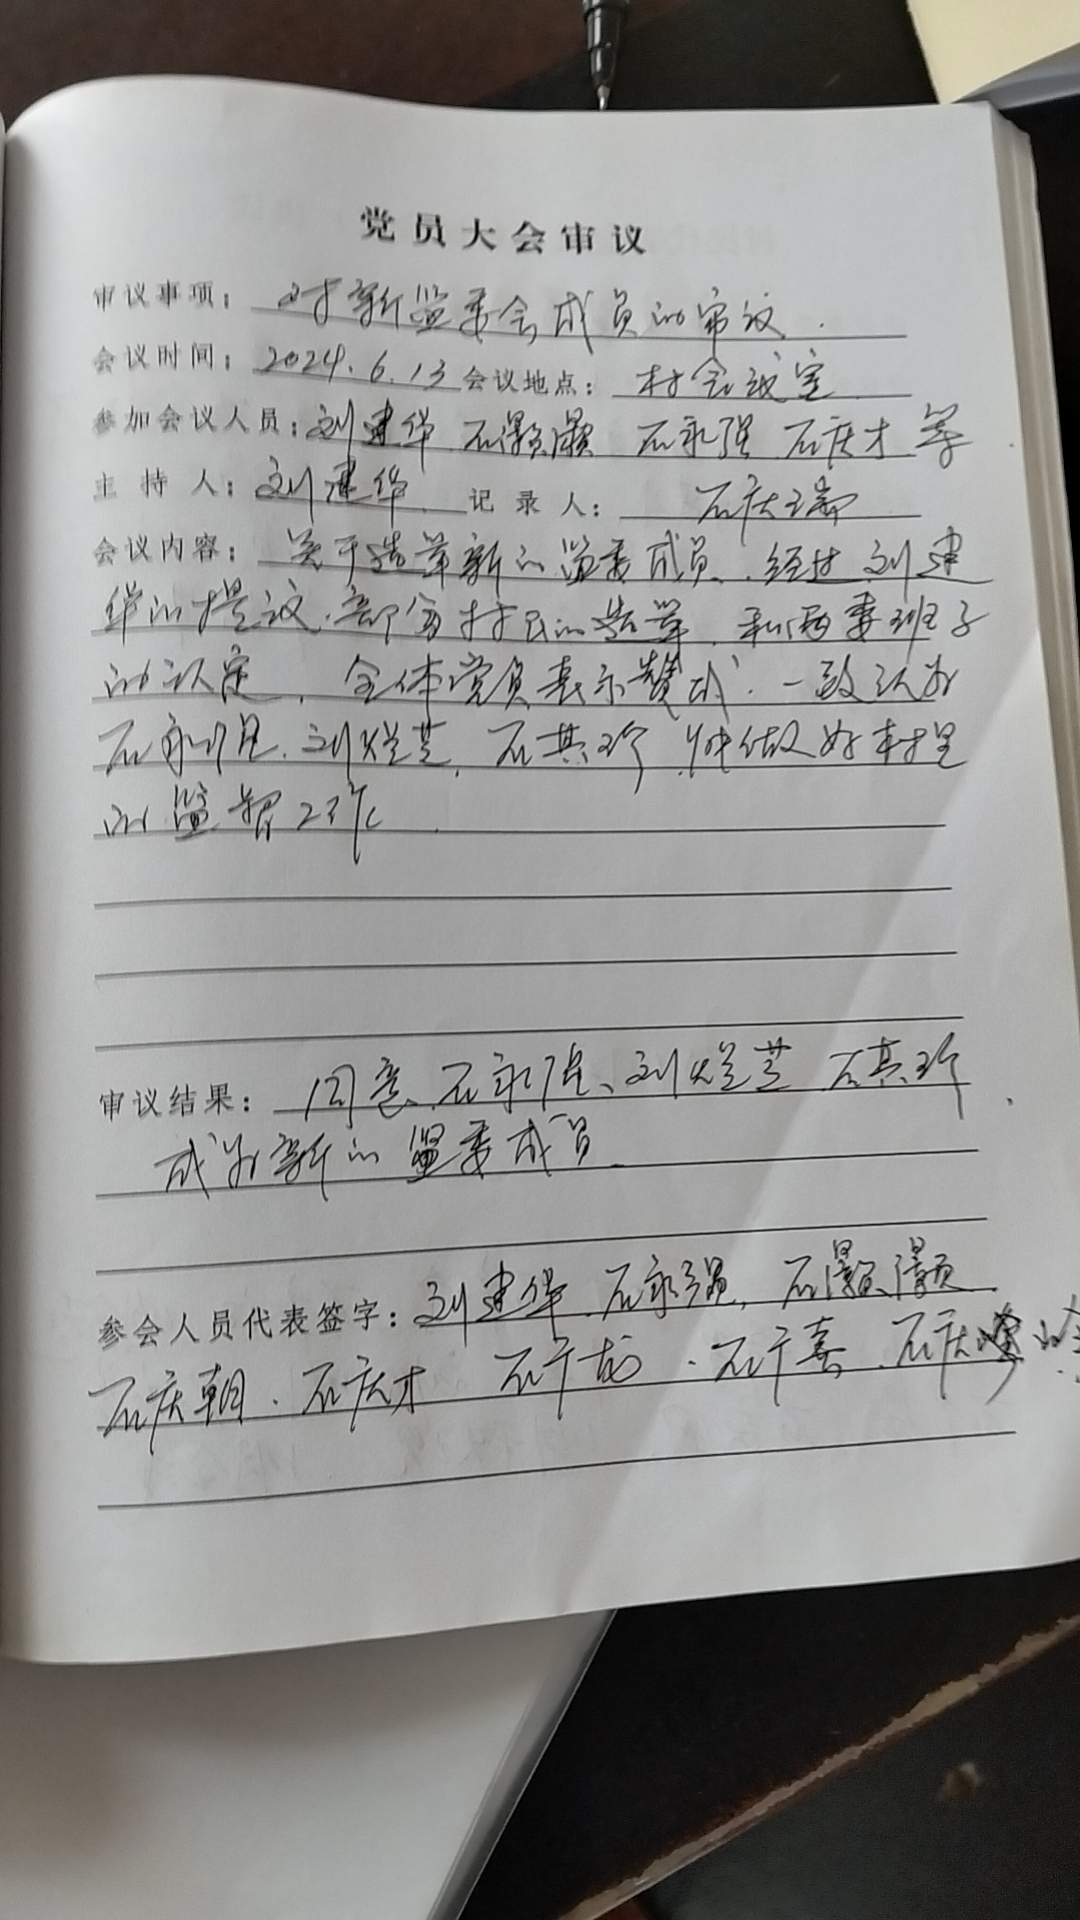 党员大会审议
审议事项: 对新监委会成员的审议.
会议时间: 2024.6.13 会议地点: 村会议室
参加会议人员: 刘建华 石灏灏 石永强 石庆才 等
主持人: 刘建华 记录人: 石庆瑞
会议内容: 关于选举新的监委成员、经过刘建
华的提议.部分村民的选举.和两委班子
的认定, 全体党员表示赞成.一致认为
石永强、刘 芝, 石其珍 能做好村里
的监督工作.
审议结果: 同意、石永强、刘 芝 石其珍
成为新的监委成员
参会人员代表签字: 刘建华 石永强, 石灏灏
石庆朝. 石庆才 石于 . 石于喜. 石庆峰